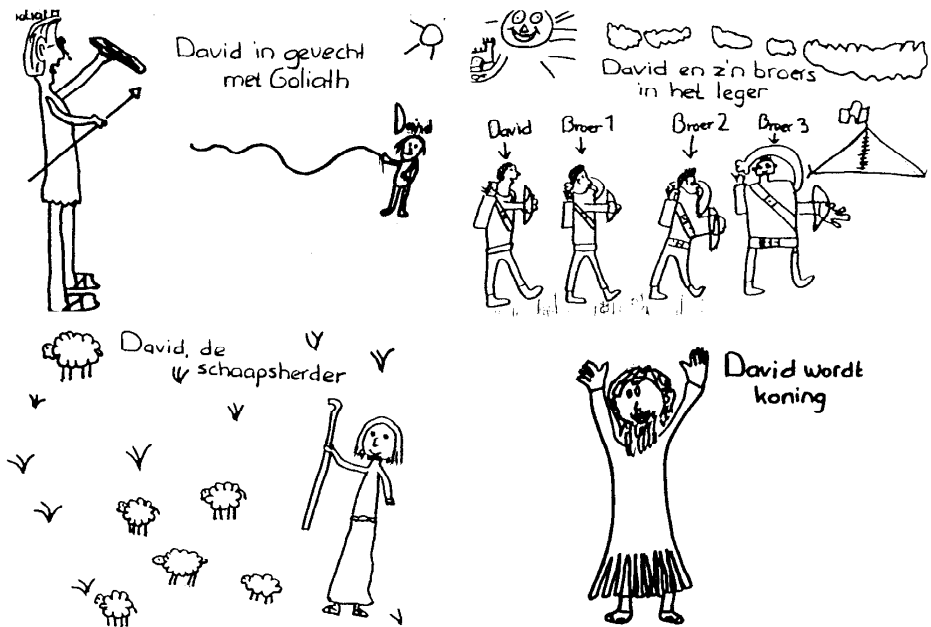 Goliath
David in gevecht
met Goliath
David
David en z'n broers
in het leger
David
Broer 1
Broer 2
Broer 3
David, de
schaapsherder
David wordt
koning